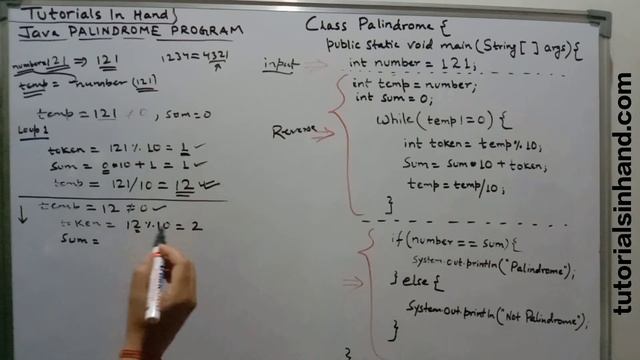 Tutorials In Hand
Java PALINDROME PROGRAM
number=121 => 121
1234=4321
temp = number (121)
temp = 121 ≠ 0, sum=0
Loop 1
token = 121 % 10 = 1
sum = 0*10 + 1 = 1
temp = 121/10 = 12
temp = 12 ≠ 0
token = 12 % 10 = 2
sum =
Class Palindrome {
public static void main (String [ ] args) {
input
int number = 121;
int temp = number;
int sum = 0;
Reverse
while (temp != 0) {
int token = temp % 10;
sum = sum * 10 + token;
temp = temp/10;
}
if (number == sum) {
System.out.println("Palindrome");
} else {
System.out.println("Not Palindrome");
}
}
tutorialsinhand.com